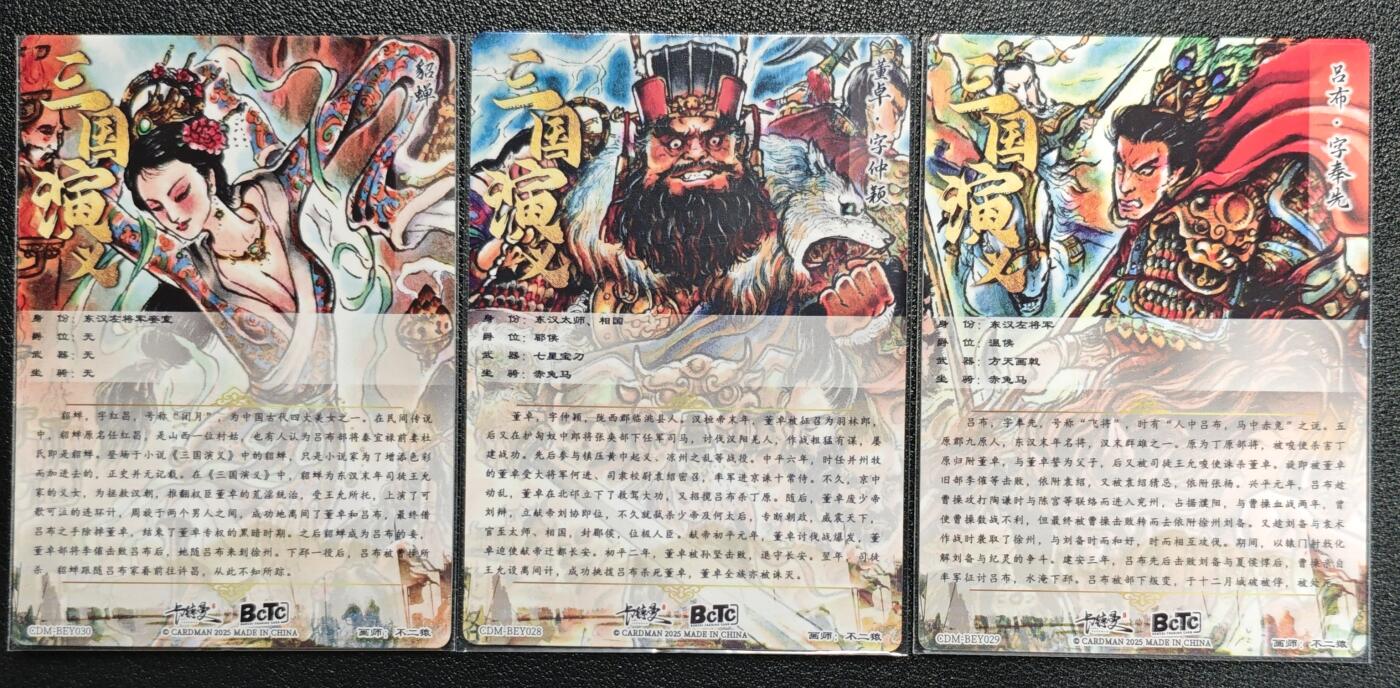 三国演义
貂蝉
身 份：东汉左将军妾室
爵 位：无
武 器：无
坐 骑：无
貂蝉，字红昌，号称“闭月”，为中国古代四大美女之一。在民间传说
中，貂蝉原名任红昌，是山西一位村姑，也有人认为吕布部将秦宜禄前妻杜
氏即是貂蝉。登场于小说《三国演义》中的貂蝉，只是小说家为了增添色彩
而加进去的，正史并无记载。在《三国演义》中，貂蝉为东汉末年司徒王允
家的义女，为拯救汉朝，推翻权臣董卓的荒淫统治，受王允所托，上演了可
歌可泣的连环计，周旋于两个男人之间，成功地离间了董卓和吕布，最终借
吕布之手除掉董卓，结束了董卓专权的黑暗时期。之后貂蝉成为吕布的妾，
董卓部将李傕击败吕布后，她随吕布来到徐州。下邳一役后，吕布被曹操所
杀，貂蝉跟随吕布家眷前往许昌，从此不知所踪。
卡牌曼 BCTC
CDM-BEY030
© CARDMAN 2025 MADE IN CHINA
画师：不二猿
三国演义
董卓·字仲颖
身 份：东汉太师、相国
爵 位：郿侯
武 器：七星宝刀
坐 骑：赤兔马
董卓，字仲颖，陇西郡临洮县人。汉桓帝末年，董卓被征召为羽林郎，
后又在护匈奴中郎将张奂部下任军司马，讨伐汉阳羌人，作战粗猛有谋，屡
建战功。先后参与镇压黄巾起义、凉州之乱等战役。中平六年，时任并州牧
的董卓受大将军何进、司隶校尉袁绍密召，率军进京诛十常侍。不久，京中
动乱，董卓在北邙立下了救驾大功，又招揽吕布杀丁原。随后，董卓废少帝
刘辩，立献帝刘协即位，不久就弑杀少帝及何太后，专断朝政，威震天下，
官至太师、相国，封郿侯，位极人臣。献帝初平元年，董卓讨伐战爆发，董
卓迫使献帝迁都长安。初平二年，董卓被孙坚击败，退守长安。翌年，司徒
王允设离间计，成功挑拨吕布杀死董卓，董卓全族亦被诛灭。
BCTC
CDM-BEY028
© CARDMAN 2025 MADE IN CHINA
画师：不二猿
三国演义
吕布·字奉先
身 份：东汉左将军
爵 位：温侯
武 器：方天画戟
坐 骑：赤兔马
吕布，字奉先，号称“飞将”，时有“人中吕布，马中赤兔”之说。五
原郡九原人，东汉末年名将，汉末群雄之一。原为丁原部将，被唆使杀害丁
原归附董卓，与董卓誓为父子，后又被司徒王允唆使诛杀董卓。旋即被董卓
旧部李傕等击败，依附袁绍，又被袁绍猜忌，依附张杨。兴平元年，吕布趁
曹操攻打陶谦时与陈宫等联络而进入兖州，占据濮阳，与曹操血战两年，曾
使曹操数战不利，但最终被曹操击败转而去依附徐州刘备。又趁刘备与袁术
作战时袭取了徐州，与刘备时而和好，时而相互攻伐。期间，以辕门射戟化
解刘备与纪灵的争斗。建安三年，吕布先后击败刘备与夏侯惇后，曹操亲自
率军征讨吕布，水淹下邳。吕布被部下叛变，于十二月城破被俘，被处死。
BCTC
CDM-BEY029
© CARDMAN 2025 MADE IN CHINA
画师：不二猿